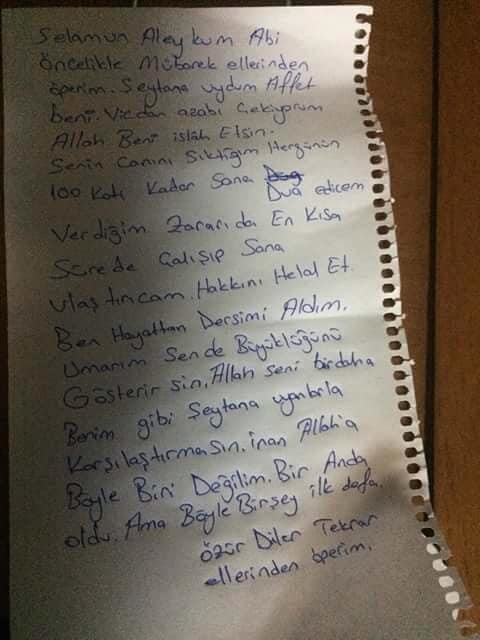 Selamun Aleykum Abi
öncelikle Mübarek ellerinden
öperim. Şeytana uydum Affet
beni. Vicdan azabı Çekiyorum
Allah Beni islah Etsin.
Senin Canını Sıktığım Hergünün
100 Katı Kadar Sana
Dua edicem
Verdiğim Zararıda En Kısa
Sürede Çalışıp Sana
ulaştırıcam. Hakkını Helal Et.
Ben Hayattan Dersimi Aldım.
Umarım Sende Büyüklüğünü
Gösterirsin. Allah seni birdaha
Benim gibi Şeytana uyanlarla
Karşılaştırmasın. inan Allah'a
Böyle Biri Değilim. Bir Anda
oldu. Ama Böyle Birşey ilk defa.
özür Diler Tekrar
ellerinden öperim.